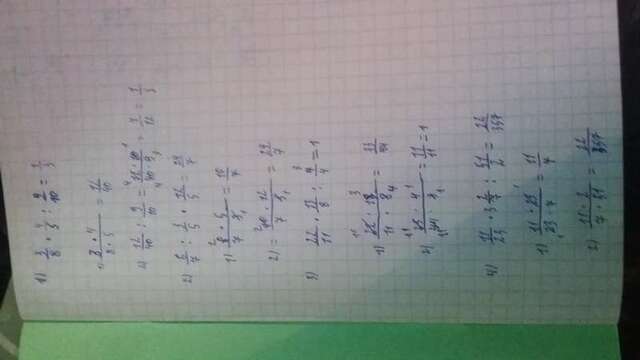 1) 3/8 · 4/5 : 9/10 = 1/3
1) 3 · 4 / 8 · 5 = 12/40
2) 12/40 : 9/10 = 12 · 10 / 40 · 9 = = 1/3
2) 6/7 : 3/5 · 12/5 = 24/7
1) 6 · 5 / 7 · 3 = 10/7
2) = 10 · 12 / 7 · 5 = 24/7
3) 22/11 · : = 1
1) = 33/44
2) = 11/11 = 1
4) 11/23 · 3 2/7 : 51/2 = 22/357
1) 11 · 23 / 23 · 7 = 11/7
2) 11 · 2 / 7 · 51 = 22/357